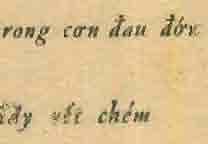 rong cơn đau đớn
đầy vết chém